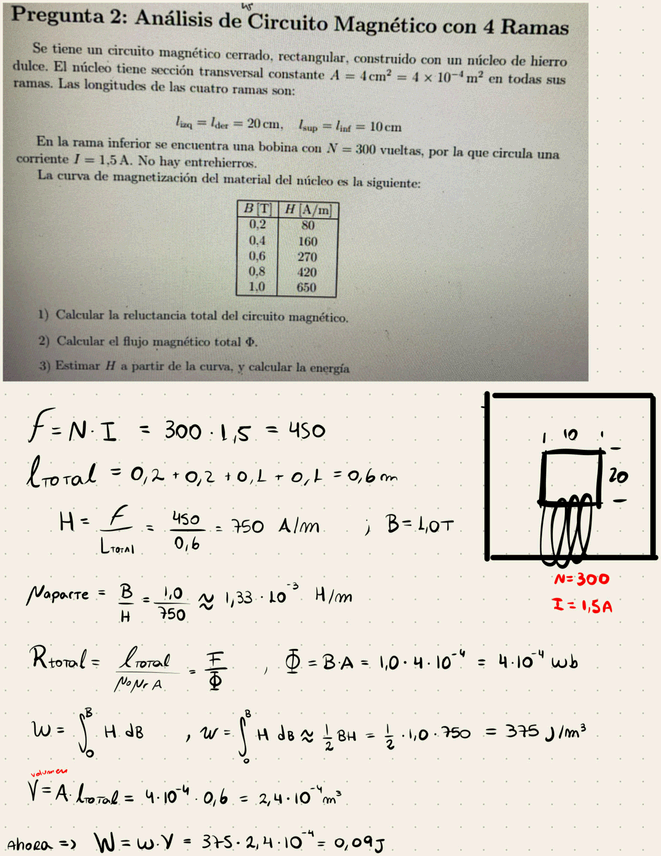 Pregunta 2: Análisis de Circuito Magnético con 4 Ramas
Se tiene un circuito magnético cerrado, rectangular, construido con un núcleo de hierro
dulce. El núcleo tiene sección transversal constante A = 4 cm² = 4 × 10⁻⁴ m² en todas sus
ramas. Las longitudes de las cuatro ramas son:
l_izq = l_der = 20 cm, l_sup = l_inf = 10 cm
En la rama inferior se encuentra una bobina con N = 300 vueltas, por la que circula una
corriente I = 1,5 A. No hay entrehierros.
La curva de magnetización del material del núcleo es la siguiente:
B [T] H [A/m]
0,2 80
0,4 160
0,6 270
0,8 420
1,0 650
1) Calcular la reluctancia total del circuito magnético.
2) Calcular el flujo magnético total Φ.
3) Estimar H a partir de la curva, y calcular la energía
F = N · I = 300 · 1,5 = 450
l TOTAL = 0,2 + 0,2 + 0,1 + 0,1 = 0,6 m
H = F / L TOTAL = 450 / 0,6 = 750 A/m ; B = 1,0 T
10
20
N = 300
I = 1,5 A
μaparte = B / H = 1,0 / 750 ≈ 1,33 · 10⁻³ H/m
Rtotal = l TOTAL / μo μr A = F / Φ , Φ = B · A = 1,0 · 4 · 10⁻⁴ = 4 · 10⁻⁴ wb
W = ∫₀ᴮ H dB , w = ∫₀ᴮ H dB ≈ 1/2 BH = 1/2 · 1,0 · 750 = 375 J/m³
volumen
V = A · l TOTAL = 4 · 10⁻⁴ · 0,6 = 2,4 · 10⁻⁴ m³
Ahora => W = w · V = 375 · 2,4 · 10⁻⁴ = 0,09 J